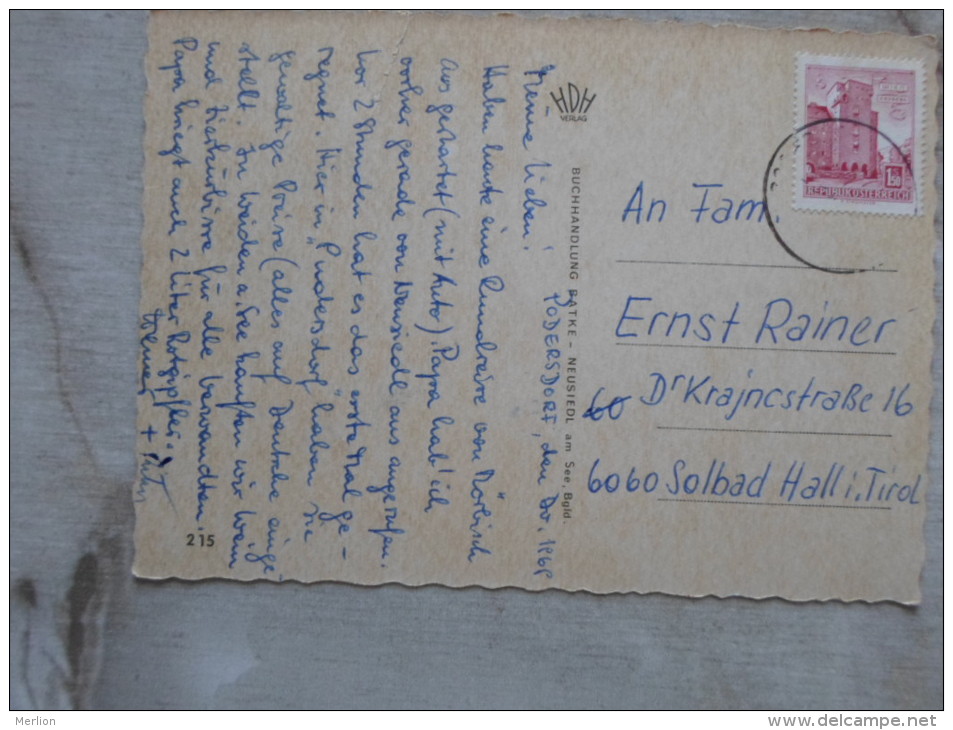 PODERSDORF, den Do. 1968
Meine Lieben!
Haben heute eine Rundreise von Mörbisch
aus gestartet (mit Auto). Papa hab' ich
vorher gerade von Neusiedl aus angerufen.
Vor 2 Stunden hat es das erste Mal ge-
regnet. Hier in "Podersdorf" haben sie
gewaltige Preise (alles auf Deutsche einge-
stellt. In Weiden a. See kauften wir Wein
und Zierkürbisse für alle Verwandten.
Papa kriegt auch 2 Liter
+
215
HDH
VERLAG
BUCHHANDLUNG RATKE – NEUSIEDL am See, Bgld
REPUBLIK ÖSTERREICH
1.50
An Fam.
Ernst Rainer
Dr Krajncstraße 16
6060 Solbad Hall i. Tirol
Merlion
www.delcampe.net